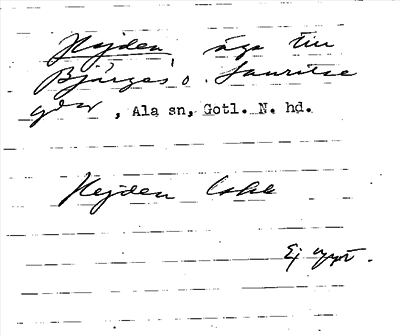 Hejden äga till
Bjärges o. Lauritse
gdar, Ala sn, Gotl. N. hd.
Hejden
Ej uppt.